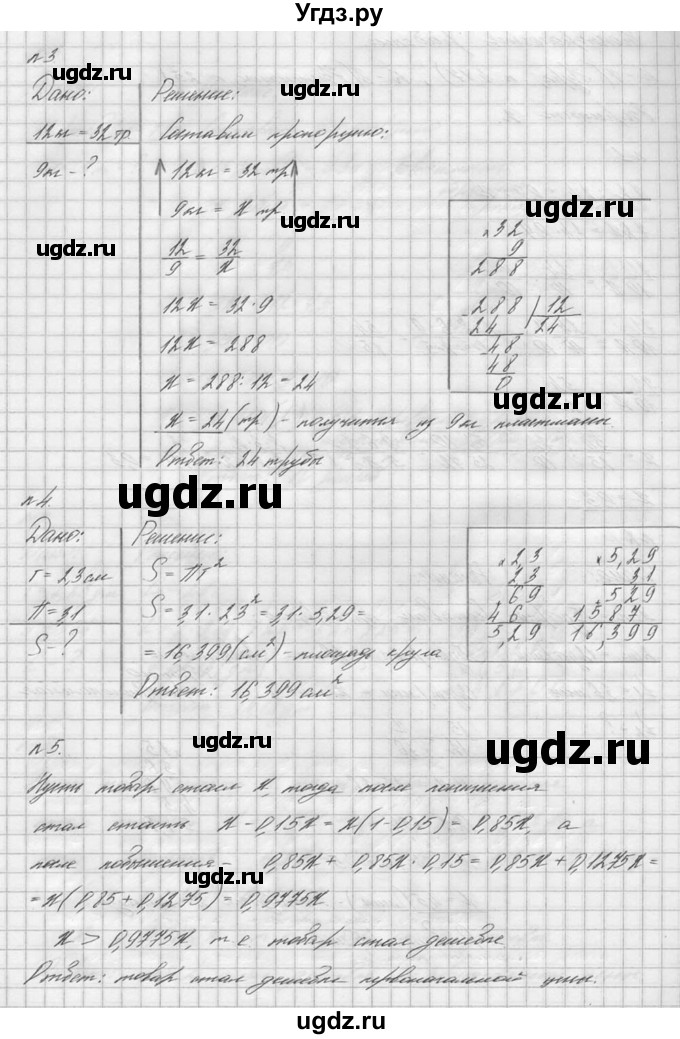 Угдз.ру
n3
Дано:
12кг = 32 тр
9кг - ?
Решение:
Составим пропорцию:
12 кг = 32 тр
9 кг = x тр
12/9 = 32/x
12x = 32 · 9
12x = 288
x = 288 : 12 = 24
x = 24 (тр) - получится из 9кг пластмассы.
Ответ: 24 трубы
× 32
9
288
288 | 12
24 | 24
48
48
0
n4.
Дано:
r = 2,3 см
π = 3,1
S - ?
Решение:
S = πr²
S = 3,1 · 2,3² = 3,1 · 5,29 =
= 16,399 (см²) - площадь круга
Ответ: 16,399 см²
× 2,3
2,3
69
46
5,29
× 5,29
3,1
529
1587
16,399
n5.
Пусть товар стоил x, тогда после понижения
стал стоить x - 0,15x = x(1-0,15) = 0,85x, а
после повышения - 0,85x + 0,85x · 0,15 = 0,85x + 0,1275x =
= x(0,85 + 0,1275) = 0,9775x
x > 0,9775x, т е товар стал дешевле
Ответ: товар стал дешевле первоначальной цены.
ugdz.ru
ugdz.ru
ugdz.ru
ugdz.ru
ugdz.ru
ugdz.ru
ugdz.ru
ugdz.ru
ugdz.ru
ugdz.ru
ugdz.ru
ugdz.ru
ugdz.ru